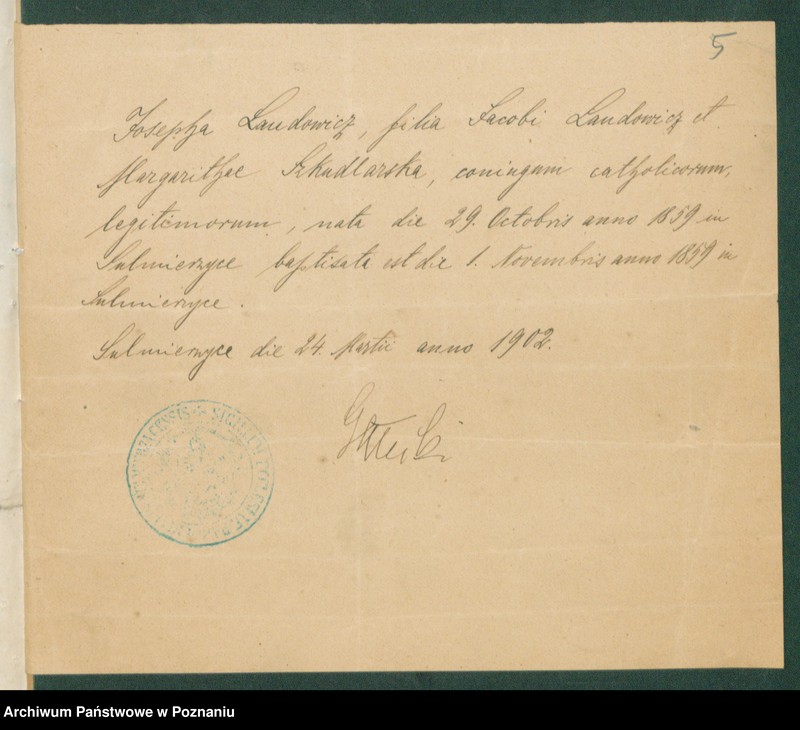 5
Josepha Laudowicz, filia Jacobi Laudowicz et
Margarithae Szkudlarska, coniugum catholicorum,
legitimorum, nata die 29. Octobris anno 1859 in
Sulmierzyce baptisata est die 1. Novembris anno 1859 in
Sulmierzyce.
Sulmierzyce die 24. Martii anno 1902.
SIGILLUM ECCLESIAE
Archiwum Państwowe w Poznaniu